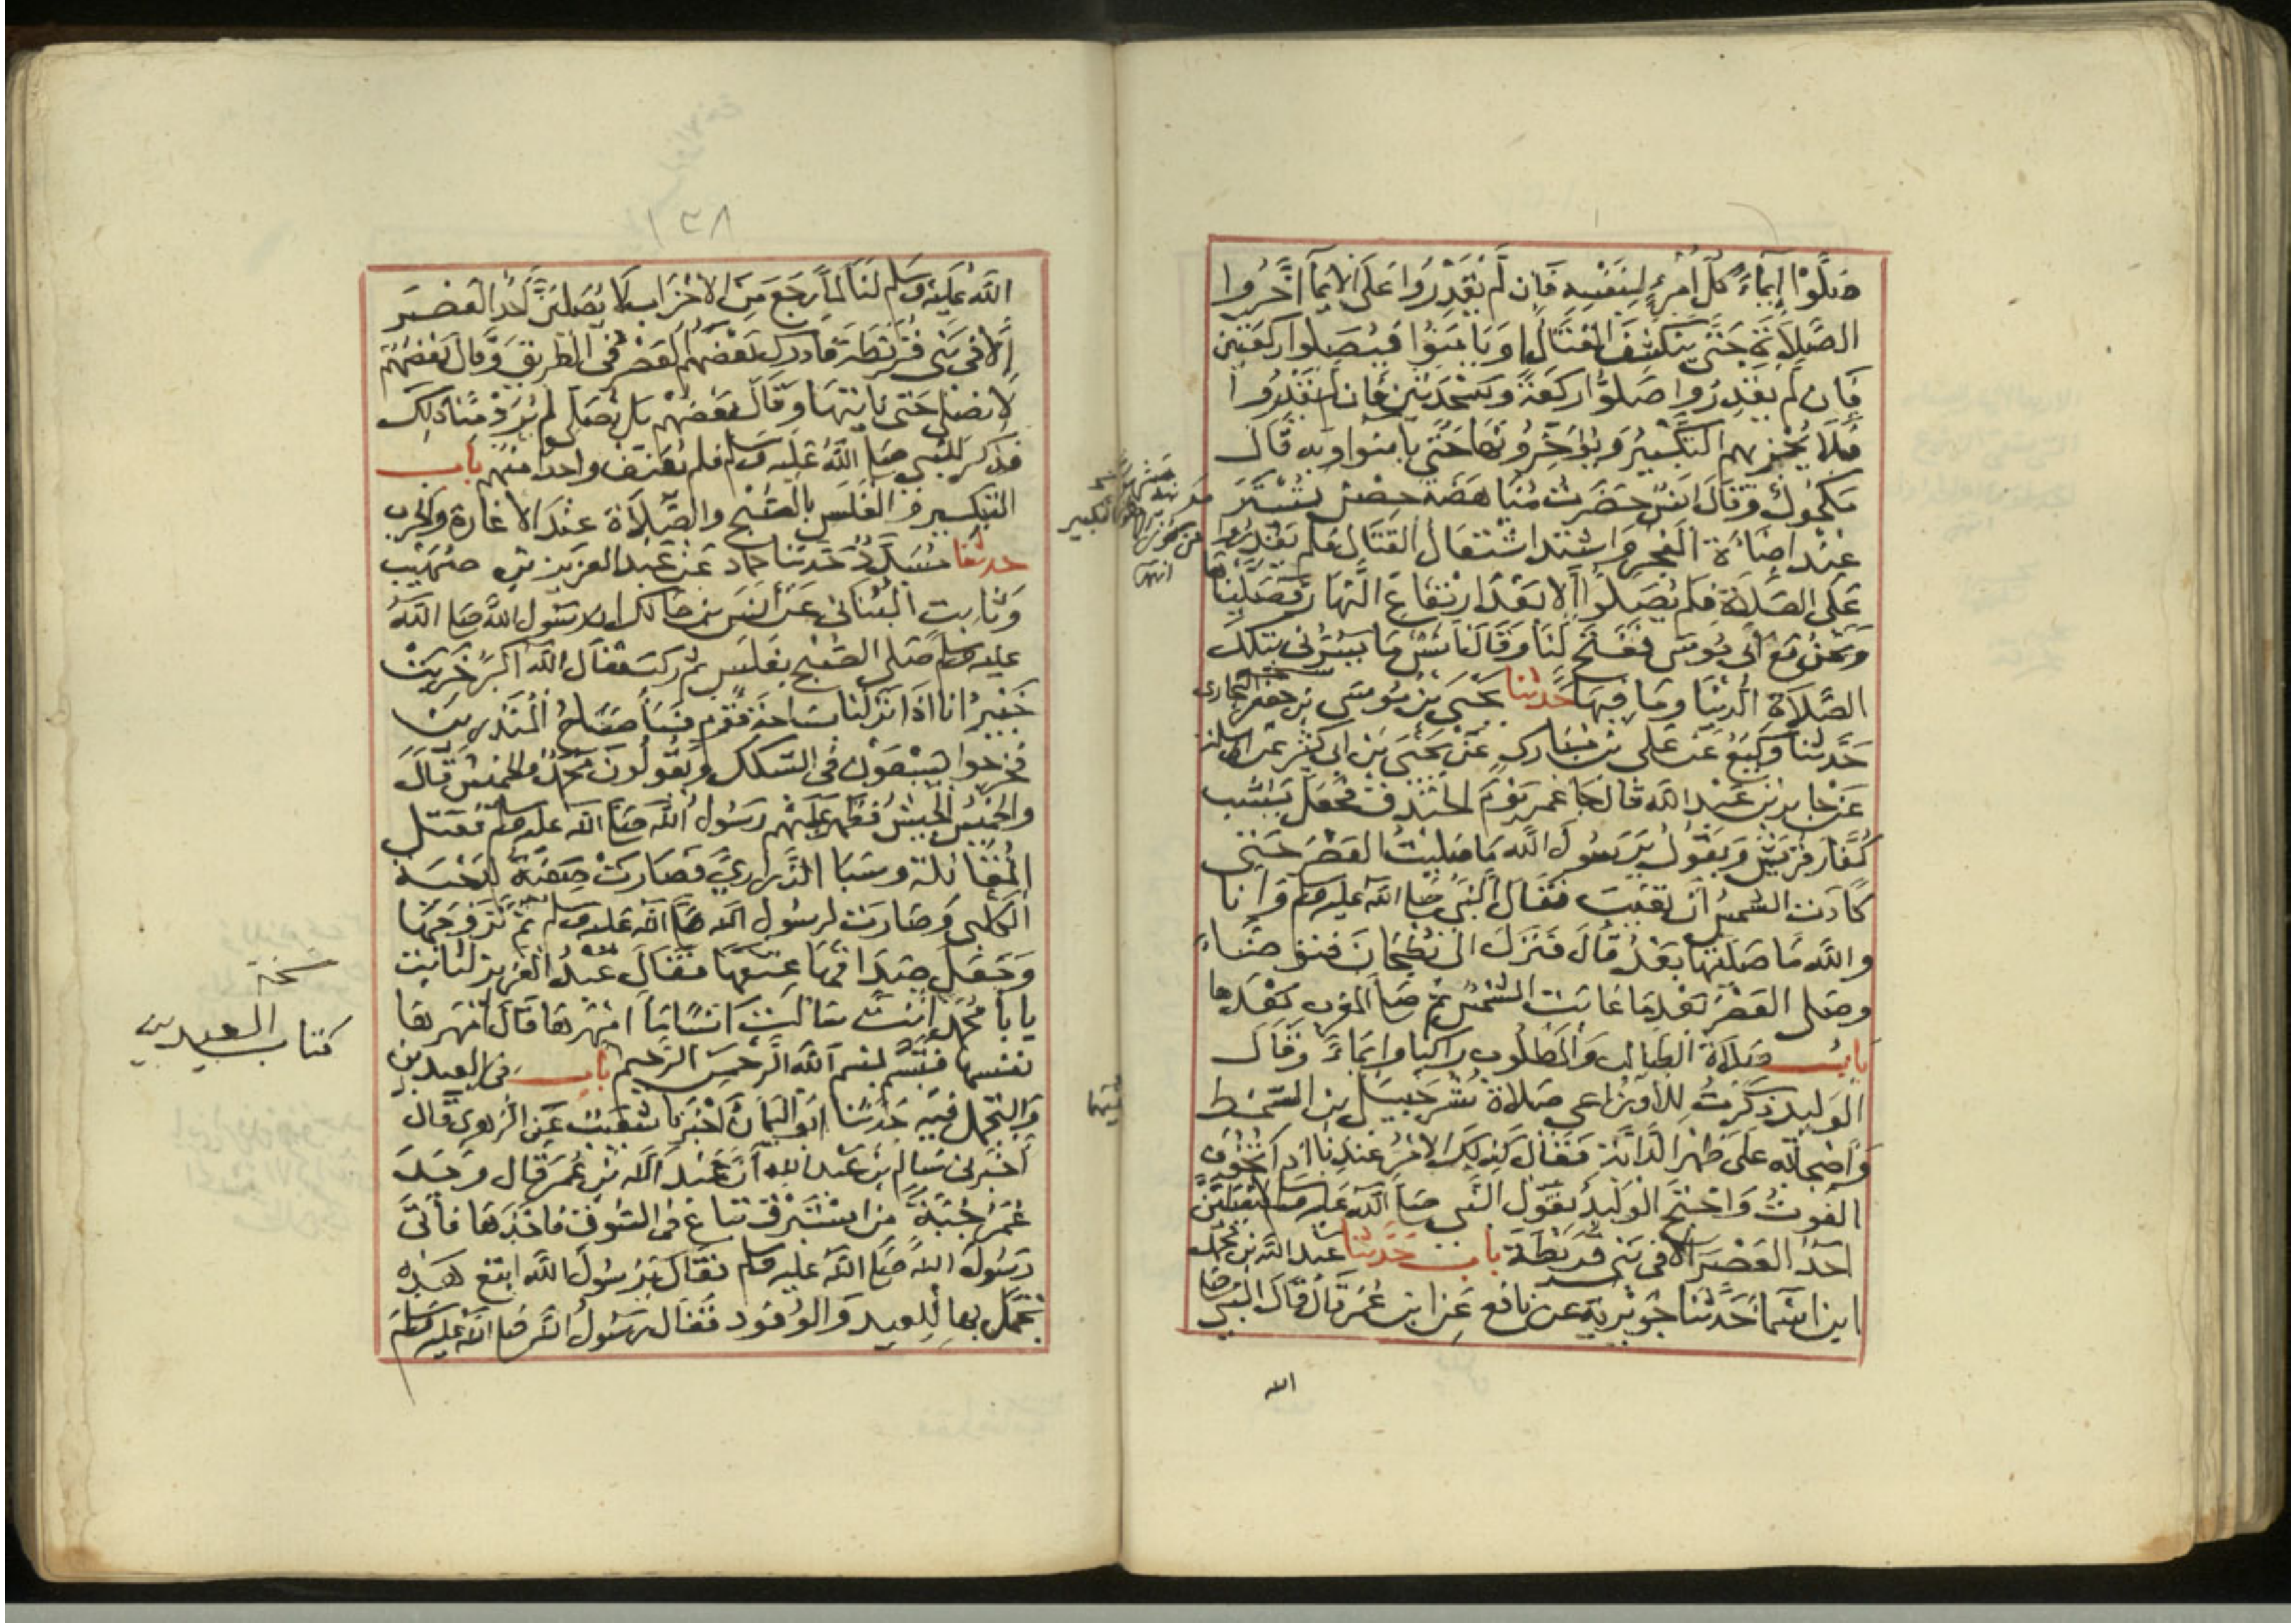 صَلَّوْا إيمَاءً كُلُّ امْرِئٍ لِنَفْسِهِ فَإِن لَّمْ يَقْدِرُوا عَلَى الايمَا أَخَّرُوا
الصَّلَاةَ حَتَّى يَنْكَشِفَ القِتَالُ او يَامَنُوا فَيُصَلوا ركعَتين
فَإن لم يَقدِرُوا صَلوُّا ركعَةً وسَجْدَتَيْن فان لم يَقْدِرُوا
فَلَا يُجْزِيهم التكْبِيْرُ وَيُؤَخِّرُونَهَا حَتَّى يامَنوا وبِهِ قَالَ
مَكحُولٌ وَقَالَ انَسٌ حَضَرتُ مُنَاهَضَةَ حِصْنِ تُسْتَرَ
عِنْدَ اضَاءَةِ الفَجْرِ واشْتَدَّ اشْتِعَالُ القتَالِ فلم يَقْدِرُوا
عَلَى الصَّلَاةِ فلم يُصَلوا إلا بَعْدَ ارْتِفَاعِ النَّهَارِ فصَلَّيْنَاها
وَنَحْنُ مَعَ أَبي مُوسَى فَفُتِحَ لنَا وَقَالَ انسٌ مَا يَسُرُّني بتلك
الصَّلاَةِ الدُّنْيَا وَمَا فِيهَا حَدَّثنَا يَحْيَى بْنُ مُوسَى بْن جعفر البخاري
حَدَّثنَا وَكِيعٌ عَنْ عَلِي بْن مُبَارك عَنْ يَحْيَى بْن ابى كثِير عن ابى سلمة
عَنْ جَابر بْن عَبْد اللّه قال جَا عُمر يَوْمَ الخَنْدَق فجَعَلَ يَسُب
كُفَّارَ قُرَيْش وَيَقُولُ يَرَسُولَ اللّه مَا صَلَّيْتُ العَصْرَ حَتَّى
كَادَتِ الشَّمْسُ أنْ تَغيبَ فَقَالَ النَّبيُّ صَلى اللّه عليه وسلم وَانا
واللَّهِ مَا صَلَّيْتُهَا بَعْدُ قَالَ فَنَزَلَ الى بُطْحَانَ فتوضَّاءَ
وصَلى العَصْرَ بَعْدَ مَا غابَت الشمْسُ ثمَّ صَلى المغرِب بَعْدَها
بابُ صَلَاةِ الطالبِ وَالمطلُوب راكبًا وايمَاءً وَقَالَ
الوَليدُ ذكَرْتُ للأوزاعى صَلاةَ شُرَحْبيل بن السَّمْط
وَأصْحَابِه عَلى ظَهْر الدَّابَّةِ فَقَالَ كَذلكَ الامْرُ عندنَا اذا تُخُوِّف
الفَوتُ وَاحْتَجَّ الوَليدُ بقَوْل النَّبى صَلى اللّه عليه وسلم لا يُصَلِّيَنَّ
احَدٌ العَصْرَ الا فى بَنى قُرَيْظَةَ بابٌ حَدَّثنَا عبد اللّه بن محمد
ابن اسْمَآءَ حَدَّثنَا جُوَيْريَةُ عن نَافِع عَن ابن عُمَرَ قَالَ قَالَ النَّبى صَلى
الله
١٣٨
اللّهُ عَلَيْه وَسَلم لَنَا لَمَّا رَجَعَ مِنَ الاحْزَاب لَا يُصَلّيَنَّ أحَدٌ العَصْرَ
إلا فى بَنى قُرَيْظَةَ فادرك بَعْضَهُمُ العَصْرُ فى الطَّريق وَقال بَعْضُهُمْ
لا نصَلى حَتى نَاتيَهَا وَقَالَ بَعْضُهُمْ بَل نُصَلى لم يُرَدْ مِنَّا ذلِكَ
فذكر للنَّبى صَلى اللَّهُ عَلَيه وسلم فلم يُعَنِّف واحدًا منهُم بابُ
التبكير والغَلَس بالصُّبْح والصَّلَاةِ عنْدَ الاغارة والحرب
حدثنا مُسَدَّدٌ حَدثنَا حمادٌ عَنْ عَبْد العَزيز بن صُهَيْب
وَثابت البُنَانى عَنْ أنَس بن مَالك ان رسُول اللّه صَلى اللّهُ
عليه وسلم صَلى الصُّبْحَ بغَلَسٍ ثم ركبَ فقال اللّه اكبرُ خَربَتْ
خَيْبرُ انا اذا نَزَلنَا بسَاحَة قَوْمٍ فسَآءَ صَبَاحُ المنْذَرينَ
فخرجوا يَسْعَوْن فى السِّكك وَيَقُولُونَ محمدٌ والخميسُ قَالَ
والخميسُ الجيشُ فظهر عليهم رَسُولُ اللّه صَلى اللّه عليه وسلم فقَتَل
المُقَاتلة وسَبَا الذَّرارىَّ فصَارتْ صَفيَّةُ لدحْيَةَ
الكَلبى وَصَارت لرسُول اللّه صَلى اللّه عليه وسلم ثم تَزَوجَهَا
وَجَعَل صَدَاقَهَا عِتْقَهَا فقَالَ عَبْدُ العَزيز لثابت
يابَا مُحَمَّدٍ أنْتَ سَألتَ انسًا مَا امْهَرَهَا قَالَ امْهَرهَا
نَفْسَها فتَبَسَّم بسم اللّه الرَّحمن الرَّحيم بابٌ فى العيدين
وَالتَّجَمُّل فيه حَدثنَا ابو اليَمَان أخْبَرنا شُعَيْبٌ عَن الزُّهْرى قَالَ
أخْبَرنى سَالم بْن عَبْد اللّه أنَّ عَبْدَ اللّه بْن عُمَرَ قَال وَجَدَ
عُمَرُ جُبَّةً من اسْتَبْرَقٍ تبَاع فى السُّوق فاخَذَهَا فأتَى
رَسُولَ اللّه صَلى اللّه عليه وسلم فقَالَ يَرَسُولَ اللَّه ابتَعْ هَذه
تجَمَّل بهَا للعيد وَالوُفُود فَقَالَ رَسُولُ اللّه صَلى اللّه عَليه وَسَلم
نسخة
كتاب العيدين